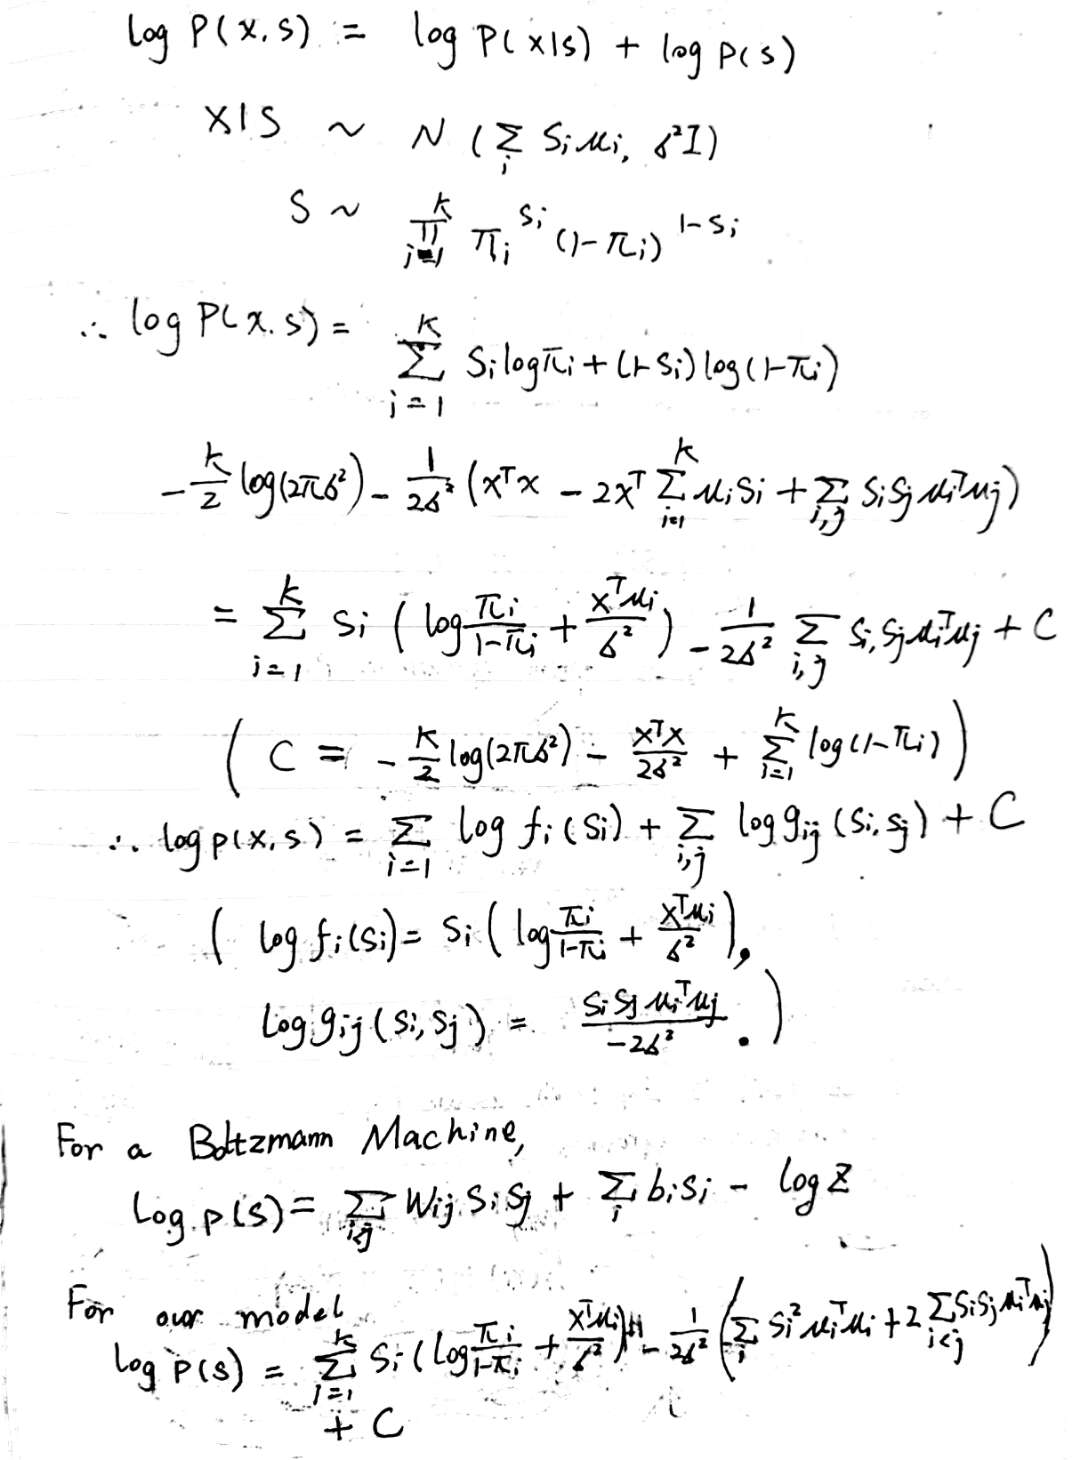 log P(x,s) = log P(x|s) + log P(s)
x|s ~ N(∑_i s_i μ_i, σ²I)
s ~ ∏_{i=1}^K π_i^{s_i} (1-π_i)^{1-s_i}
∴ log P(x,s) = ∑_{i=1}^K s_i log π_i + (1-s_i) log(1-π_i)
- K/2 log(2πσ²) - 1/(2σ²) (x^T x - 2x^T ∑_{i=1}^K μ_i s_i + ∑_{i,j} s_i s_j μ_i^T μ_j)
= ∑_{i=1}^K s_i (log π_i/(1-π_i) + x^T μ_i/σ²) - 1/(2σ²) ∑_{i,j} s_i, s_j μ_i^T μ_j + C
(C = - K/2 log(2πσ²) - x^T x/(2σ²) + ∑_{i=1}^K log(1-π_i))
∴ log p(x,s) = ∑_{i=1} log f_i(s_i) + ∑_{i,j} log g_{ij}(s_i, s_j) + C
( log f_i(s_i) = s_i (log π_i/(1-π_i) + x^T μ_i/σ²),
log g_{ij}(s_i, s_j) = s_i s_j μ_i^T μ_j/(-2σ²) . )
For a Boltzmann Machine,
log p(s) = ∑_{i<j} W_{ij} s_i s_j + ∑_i b_i s_i - log Z
For our model
log P(s) = ∑_{i=1}^K s_i (log π_i/(1-π_i) + x^T μ_i/σ²) - 1/(2σ²) (∑_i s_i² μ_i^T μ_i + 2 ∑_{i<j} s_i s_j μ_i^T μ_j)
+ C